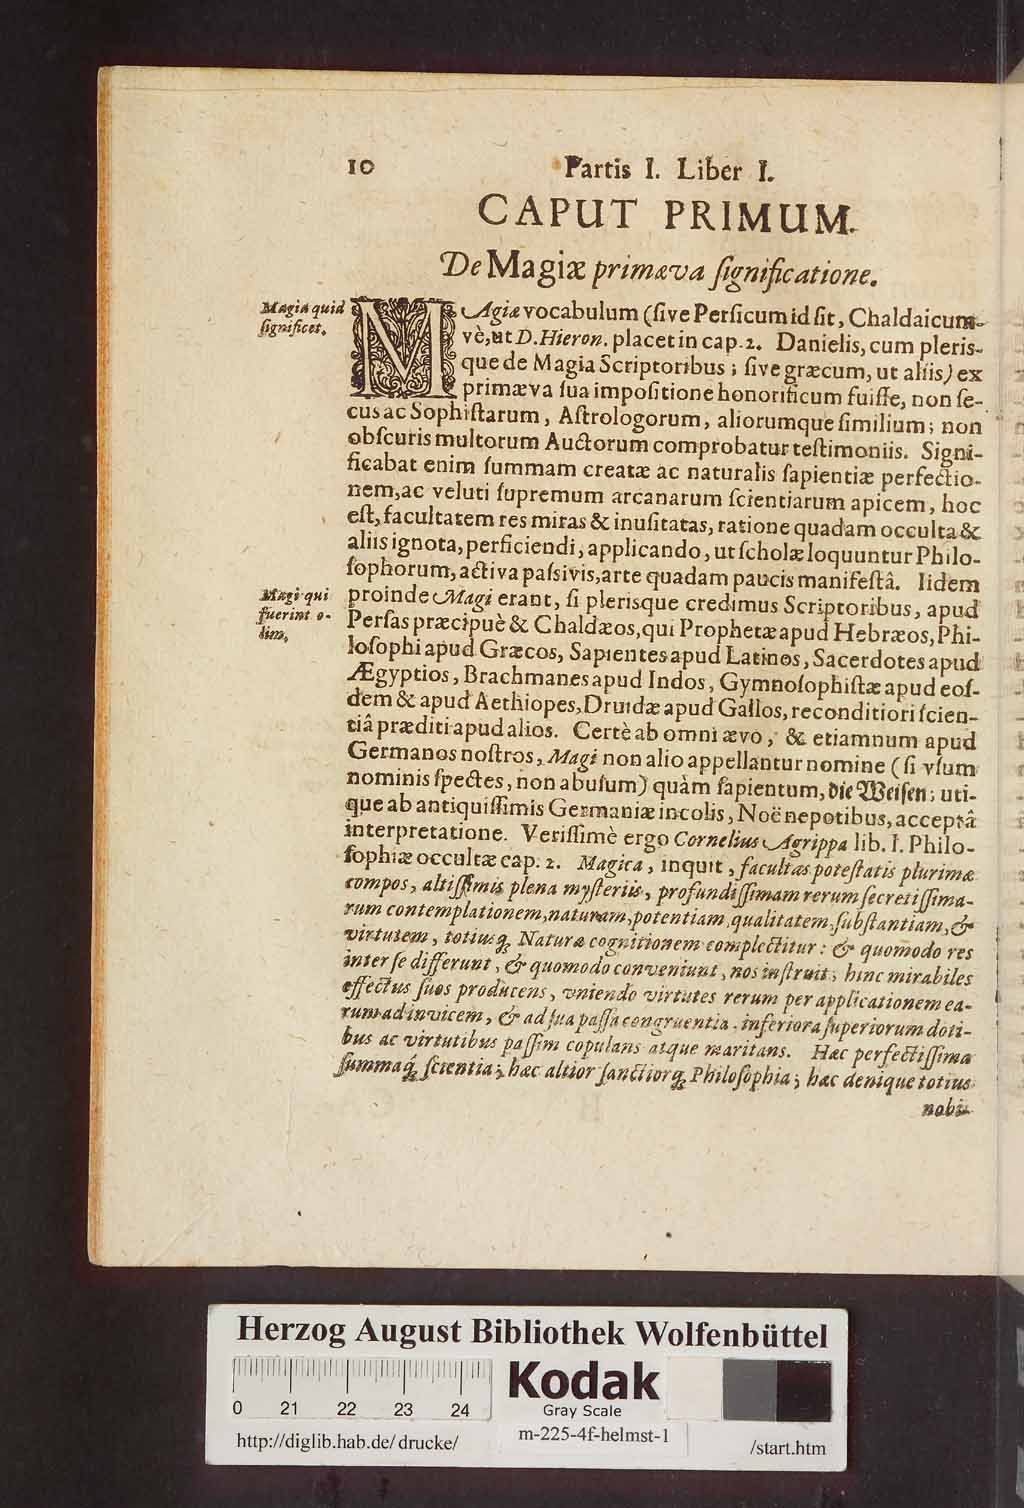 10 Partis I. Liber I.
CAPUT PRIMUM.
De Magiæ primæva ſignificatione.
Magia quid
ſignificet.
MAgiæ vocabulum (ſive Perſicum id ſit, Chaldaicum-
vè, ut D. Hieron. placet in cap. 2. Danielis, cum pleris-
que de Magia Scriptoribus; ſive græcum, ut aliis) ex
primæva ſua impoſitione honorificum fuiſſe, non ſe-
cus ac Sophiſtarum, Aſtrologorum, aliorumque ſimilium; non
obſcuris multorum Auctorum comprobatur teſtimoniis. Signi-
ficabat enim ſummam creatæ ac naturalis ſapientiæ perfectio-
nem, ac veluti ſupremum arcanarum ſcientiarum apicem, hoc
eſt, facultatem res miras & inuſitatas, ratione quadam occulta &
aliis ignota, perficiendi, applicando, ut ſcholæ loquuntur Philo-
ſophorum, activa paſsivis, arte quadam paucis manifeſtâ. Iidem
Magi qui
fuerint o-
lim.
proinde Magi erant, ſi plerisque credimus Scriptoribus, apud
Perſas præcipuè & Chaldæos, qui Prophetæ apud Hebræos, Phi-
loſophi apud Græcos, Sapientes apud Latinos, Sacerdotes apud
Ægyptios, Brachmanes apud Indos, Gymnoſophiſtæ apud eoſ-
dem & apud Aethiopes, Druidæ apud Gallos, reconditiori ſcien-
tiâ præditi apud alios. Certè ab omni ævo, & etiamnum apud
Germanos noſtros, Magi non alio appellantur nomine (ſi vſum
nominis ſpectes, non abuſum) quàm ſapientum, die Weiſen; uti-
que ab antiquiſſimis Germaniæ incolis, Noë nepotibus, acceptâ
interpretatione. Veriſſimè ergo Cornelius Agrippa lib. I. Philo-
ſophiæ occultæ cap. 2. Magica, inquit, facultas poteſtatis plurimæ
compos, altiſſimis plena myſteriis, profundiſſimam rerum ſecretiſſima-
rum contemplationem, naturam, potentiam, qualitatem, ſubſtantiam, &
virtutem, totiusq; Naturæ cognitionem complectitur: & quomodo res
inter ſe differunt, & quomodo conveniunt, nos inſtruit; hinc mirabiles
effectus ſuos producens, vniendo virtutes rerum per applicationem ea-
rum ad invicem, & ad ſua paſſa congruentia, inferiora ſuperiorum doti-
bus ac virtutibus paſſim copulans atque maritans. Hæc perfectiſſima
ſummaq́; ſcientia; hæc altior ſanctiorq; Philoſophia; hæc denique totius
nobi-
Herzog August Bibliothek Wolfenbüttel
0 21 22 23 24
Kodak
Gray Scale
http://diglib.hab.de/ drucke/
m-225-4f-helmst-1
/start.htm